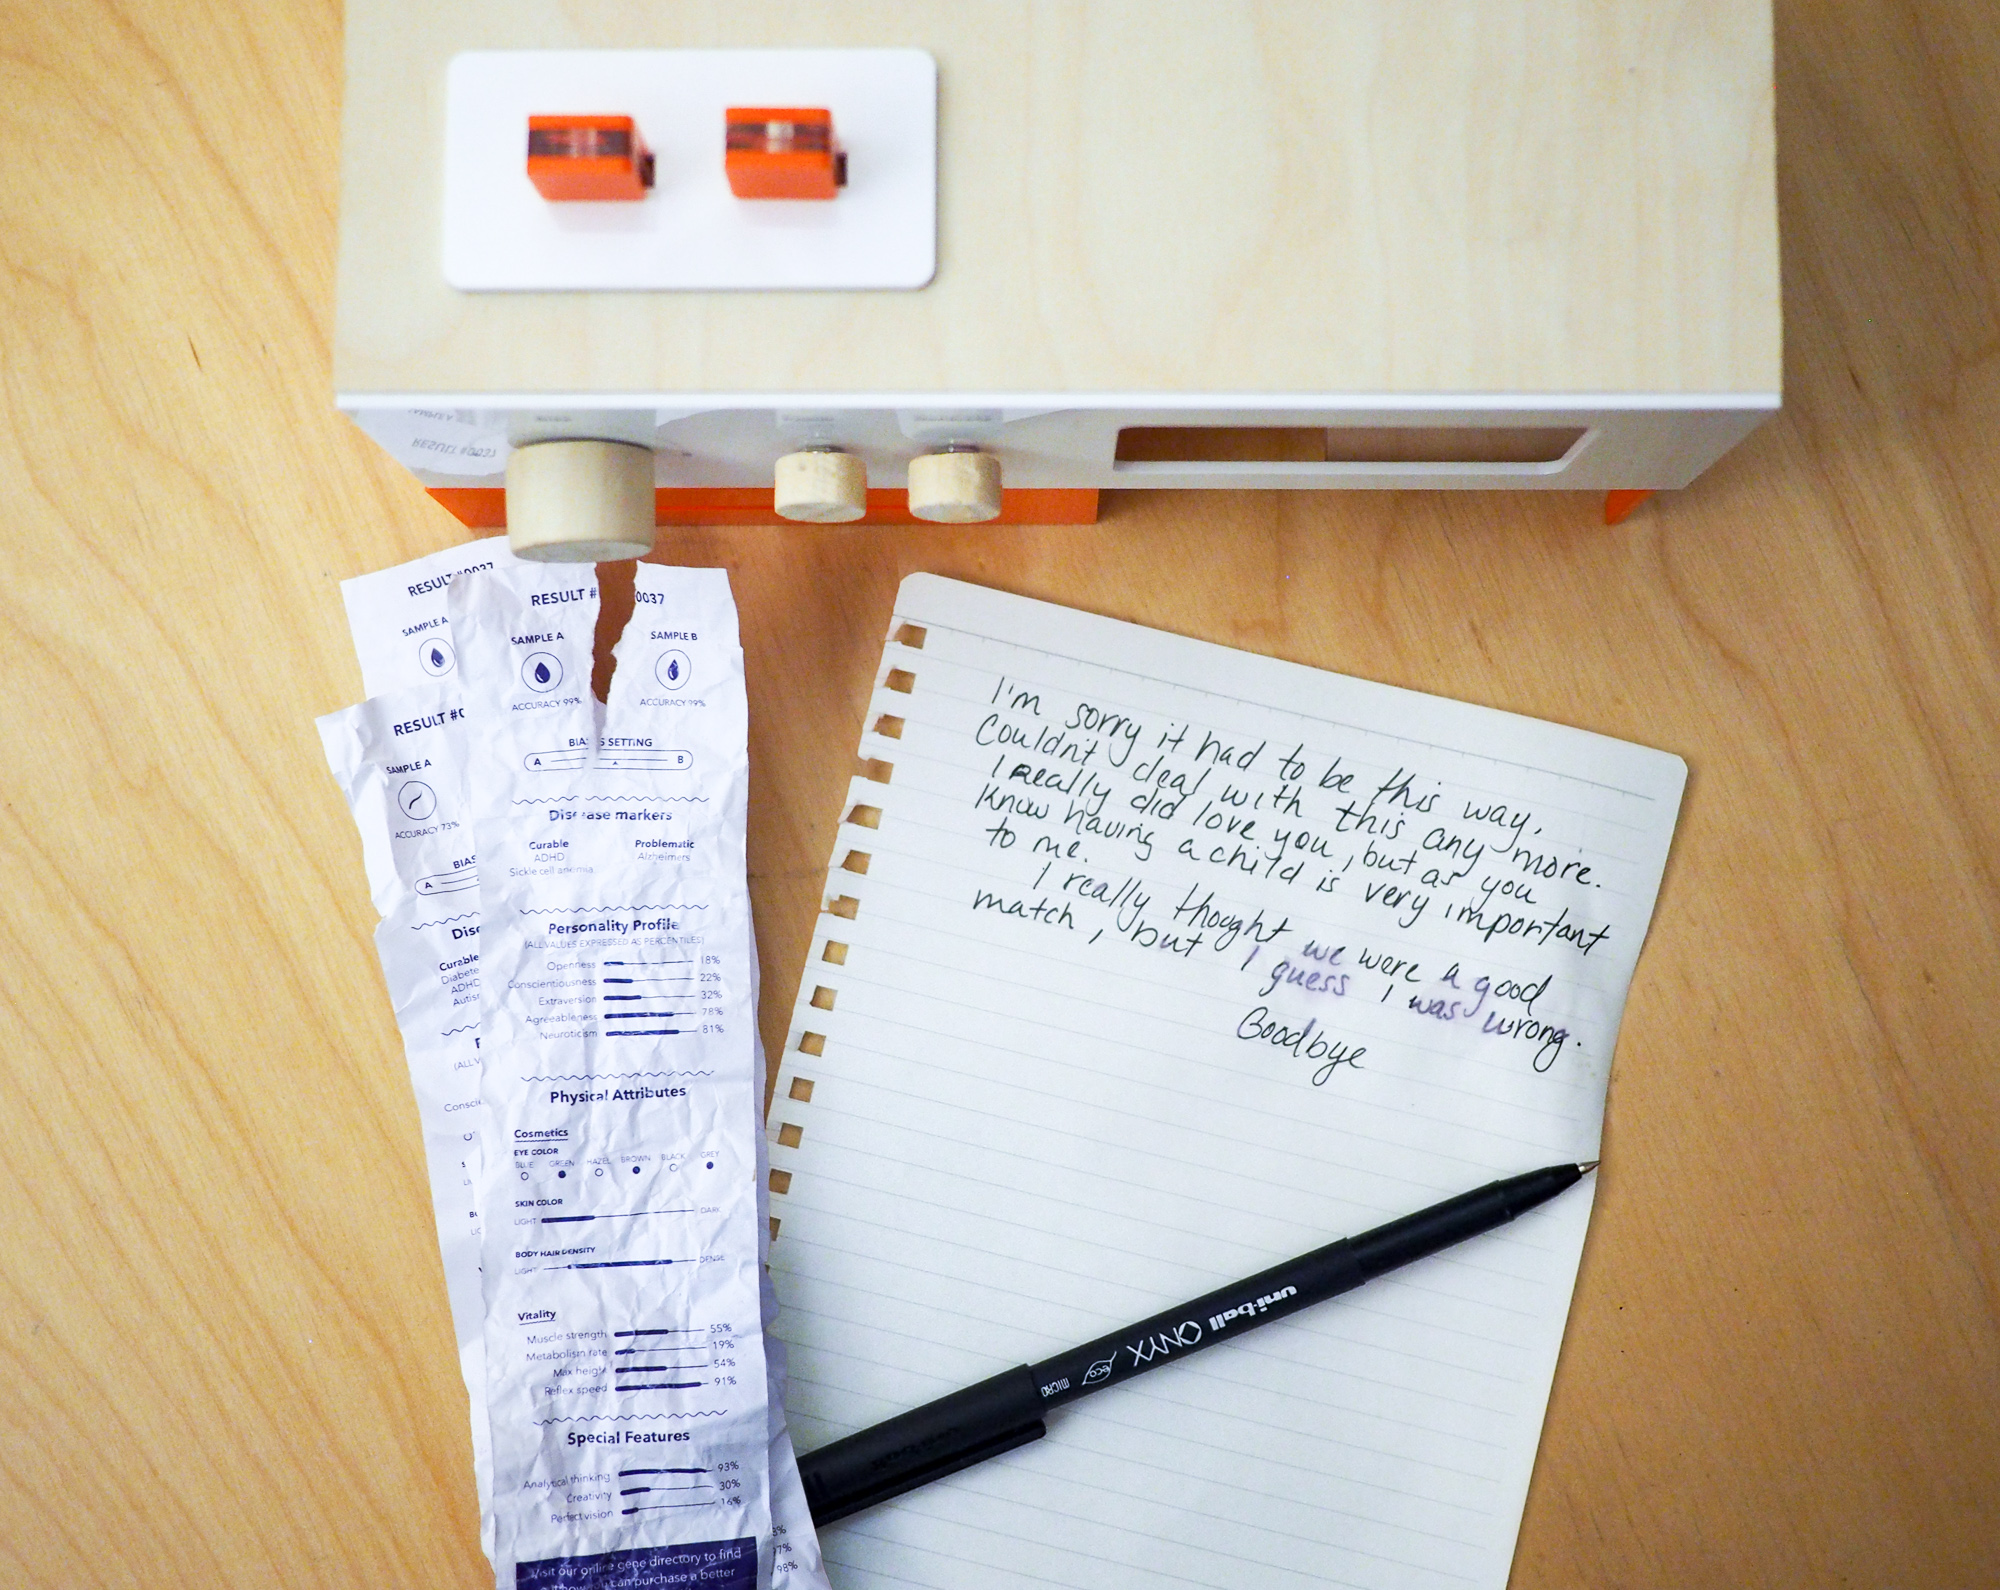 RESULT #0037
RESULT #0037
SAMPLE A
RESULT #0037
SAMPLE A SAMPLE B
ACCURACY 99% ACCURACY 99%
BIAS SETTING
A B
Disease markers
Curable Problematic
ADHD Alzheimers
Sickle cell anemia
Personality Profile
(ALL VALUES EXPRESSED AS PERCENTILES)
Openness 18%
Conscientiousness 22%
Extraversion 32%
Agreeableness 78%
Neuroticism 81%
Physical Attributes
Cosmetics
EYE COLOR
BLUE GREEN HAZEL BROWN BLACK GREY
SKIN COLOR
LIGHT DARK
BODY HAIR DENSITY
LIGHT DENSE
Vitality
Muscle strength 55%
Metabolism rate 19%
Max height 54%
Reflex speed 91%
Special Features
Analytical thinking 93%
Creativity 30%
Perfect vision 16%
Visit our online gene directory to find
you can purchase a better
RESULT #0
SAMPLE A
ACCURACY 73%
BIAS
A
Disc
Curable
Diabete
ADHD
Autis
(ALL V
Consci
8%
7%
98%
I'm sorry it had to be this way,
Couldn't deal with this any more.
I really did love you, but as you
know having a child is very important
to me.
I really thought we were a good
match, but I guess I was wrong.
Goodbye
uni-ball ONYX eco MICRO